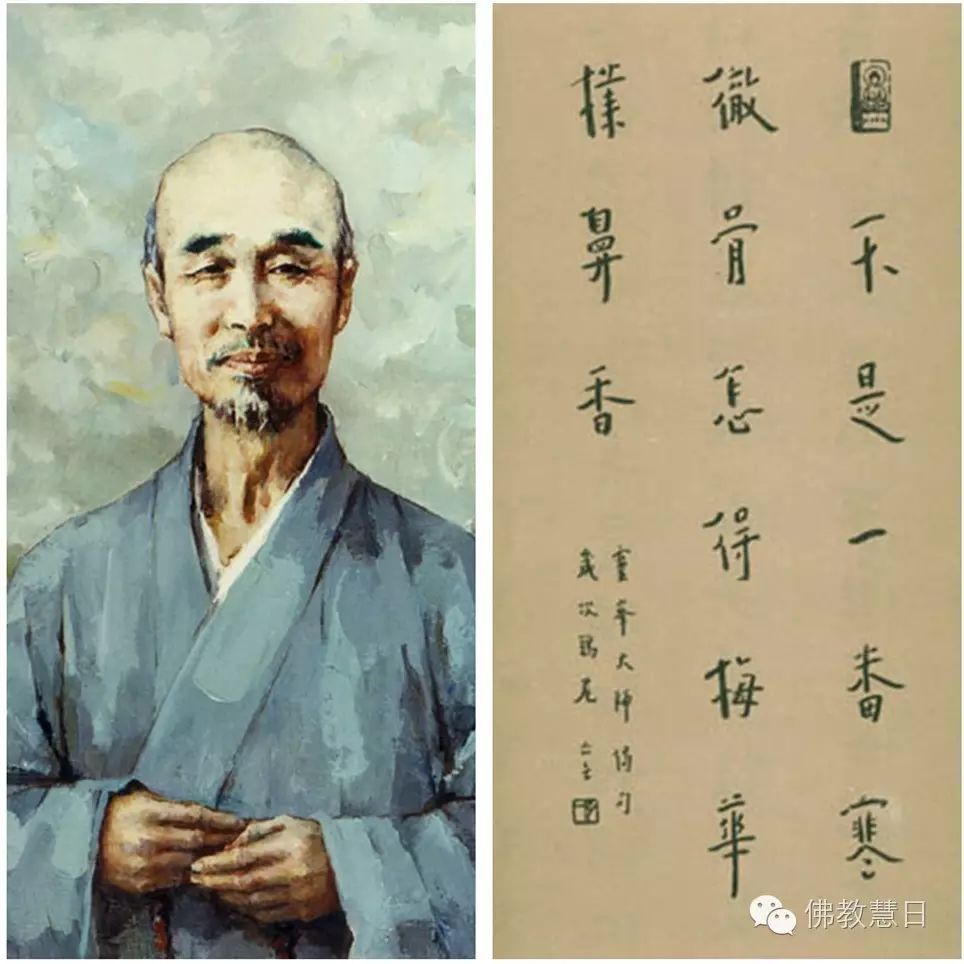 不是一番寒
徹骨怎得梅華
撲鼻香
靈峯大師偈句
歲次鶉尾
佛教慧日